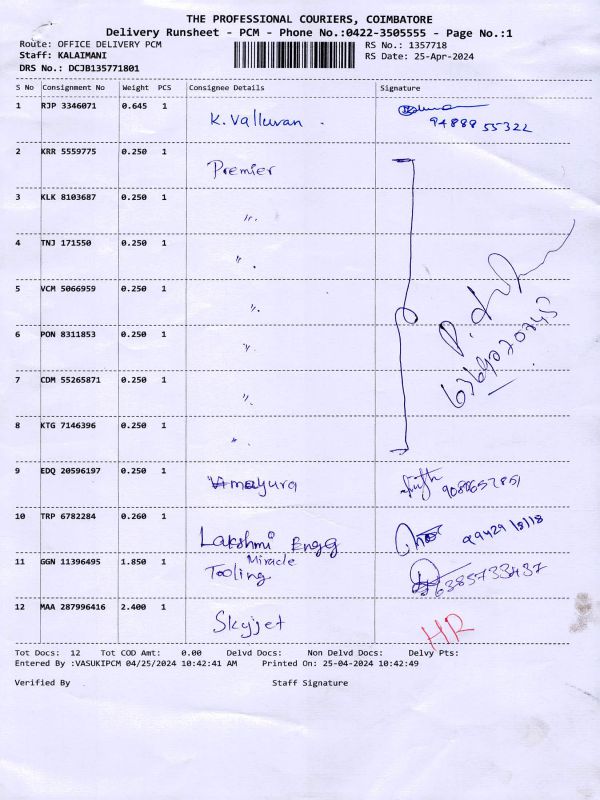 THE PROFESSIONAL COURIERS, COIMBATORE
Delivery Runsheet - PCM - Phone No.:0422-3505555 - Page No.:1
Route: OFFICE DELIVERY PCM RS No.: 1357718
Staff: KALAIMANI RS Date: 25-Apr-2024
DRS No.: DCJB135771801
S No Consignment No Weight PCS Consignee Details Signature
1 RJP 3346071 0.645 1 K. Valluvan .
94888 55322
2 KRR 5559775 0.250 1 Premier
3 KLK 8103687 0.250 1 〃
4 TNJ 171550 0.250 1 〃
5 VCM 5066959 0.250 1 〃
6 PON 8311853 0.250 1 〃
7 CDM 55265871 0.250 1 〃
8 KTG 7146396 0.250 1 〃
9 EDQ 20596197 0.250 1 mayura
10 TRP 6782284 0.260 1 Lakshmi Engg
11 GGN 11396495 1.850 1 Miracle
Tooling 6385733437
12 MAA 287996416 2.400 1 Skyjet HR
Tot Docs: 12 Tot COD Amt: 0.00 Delvd Docs: Non Delvd Docs: Delvy Pts:
Entered By :VASUKIPCM 04/25/2024 10:42:41 AM Printed On: 25-04-2024 10:42:49
Verified By Staff Signature